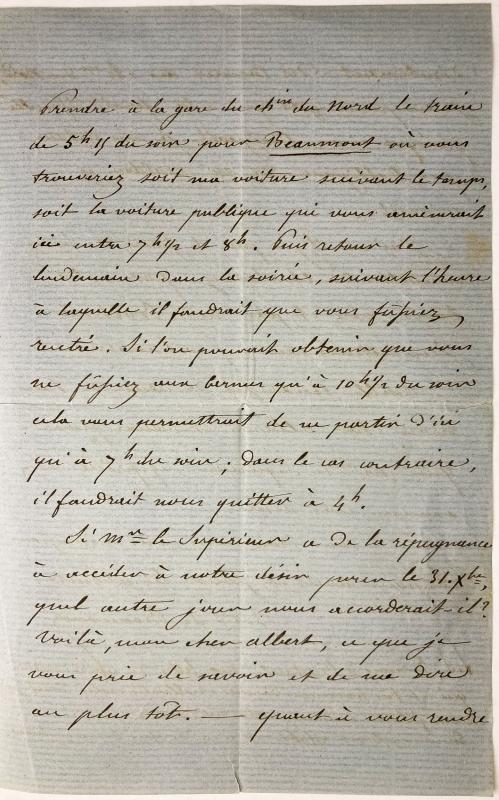 Prendre à la gare du ch.in du Nord le train
de 5h 15 du soir pour Beaumont où vous
trouveriez soit ma voiture suivant le temps,
soit la voiture publique qui vous amènerait
ici entre 7h 1/2 et 8h. Puis retour le
lendemain dans la soirée, suivant l'heure
à laquelle il faudrait que vous fûssiez
rentré. Si l'on pouvait obtenir que vous
ne fûssiez aux bernus qu'à 10h 1/2 du soir
cela vous permettrait de ne partir d'ici
qu'à 7h du soir; dans le cas contraire,
il faudrait nous quitter à 4h.
Si Mr le Supérieur a de la répugnance
à accéder à notre désir pour le 31. Xbre,
quel autre jour nous accorderait-il?
Voilà, mon cher albert, ce que je
vous prie de savoir et de me dire
au plus tôt. — quant à vous rendre